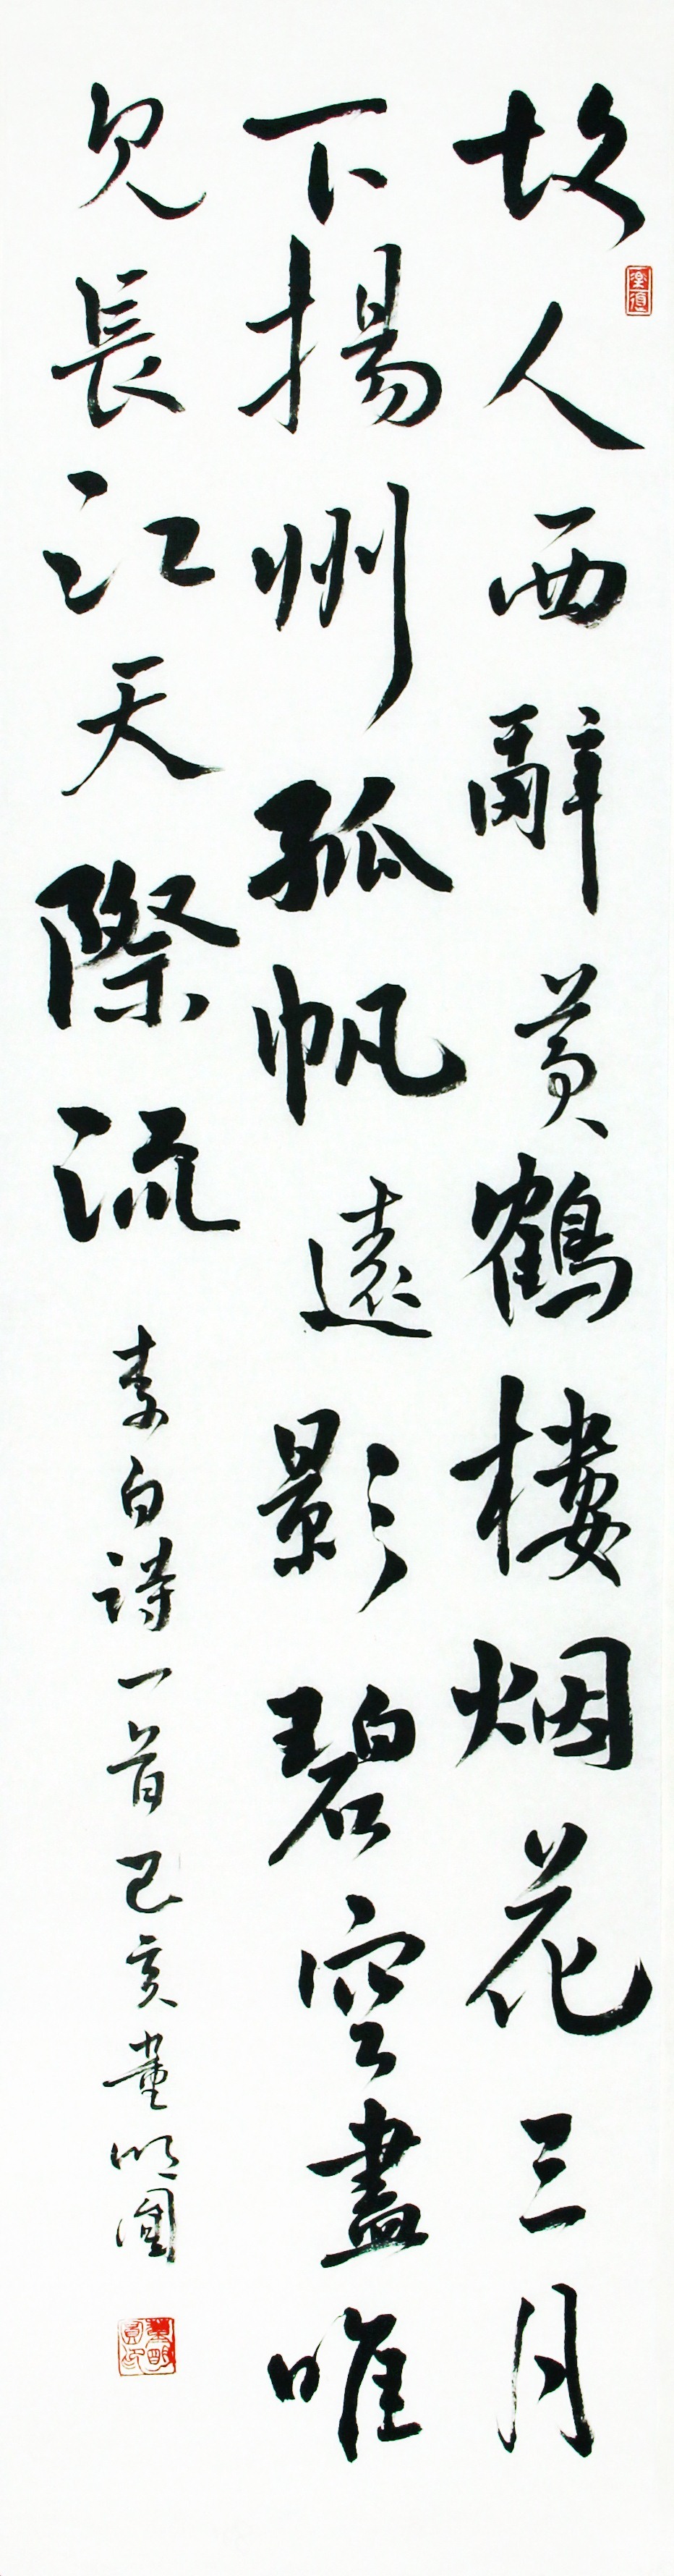 故人西辭黄鶴樓烟花三月
下揚州孤帆遠影碧空盡唯
見長江天際流
李白詩一首己亥董明圓